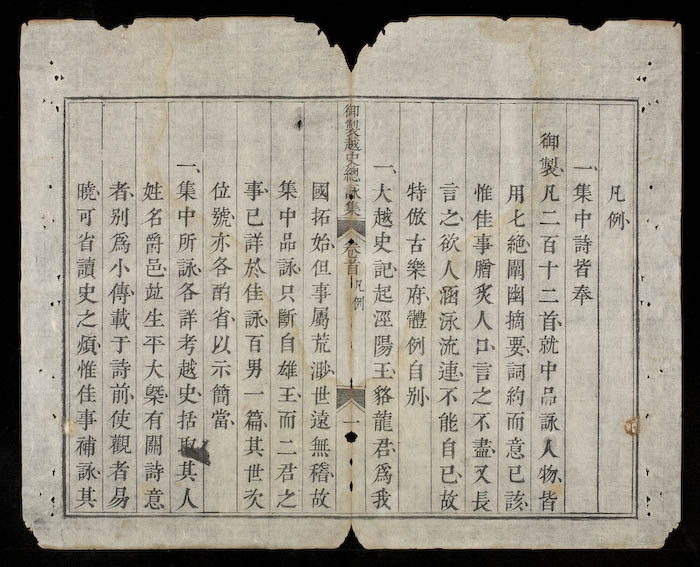 凡例
一集中詩皆奉
御製凡二百十二首就中品詠人物皆
用七絕闡幽摘要詞約而意已該
惟佳事膾炙人口言之不盡又長
言之欲人涵泳流連不能自已故
特倣古樂府體例自別
一大越史記起涇陽王貉龍君爲我
御製越史總詠集 卷首 凡例 一
國拓始但事屬荒渺世遠無稽故
集中品詠只斷自雄王而二君之
事已詳於佳詠百男一篇其世次
位號亦各酌省以示簡當
一集中所詠各詳考越史括取其人
姓名爵邑並生平大槩有關詩意
者別爲小傳載于詩前使觀者易
曉可省讀史之煩惟佳事補詠其